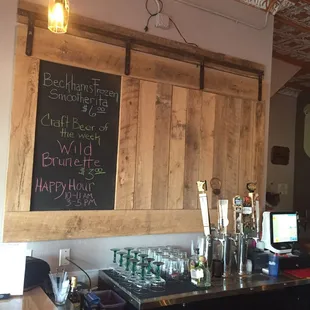 Beckham's Frozen
Smootherita
$6.00
Craft Beer of
the week
Wild
Brunette
$3.00
HAPPY Hour
10-11AM
3-5PM